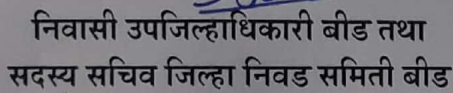 निवासी उपजिल्हाधिकारी बीड तथा
सदस्य सचिव जिल्हा निवड समिती बीड